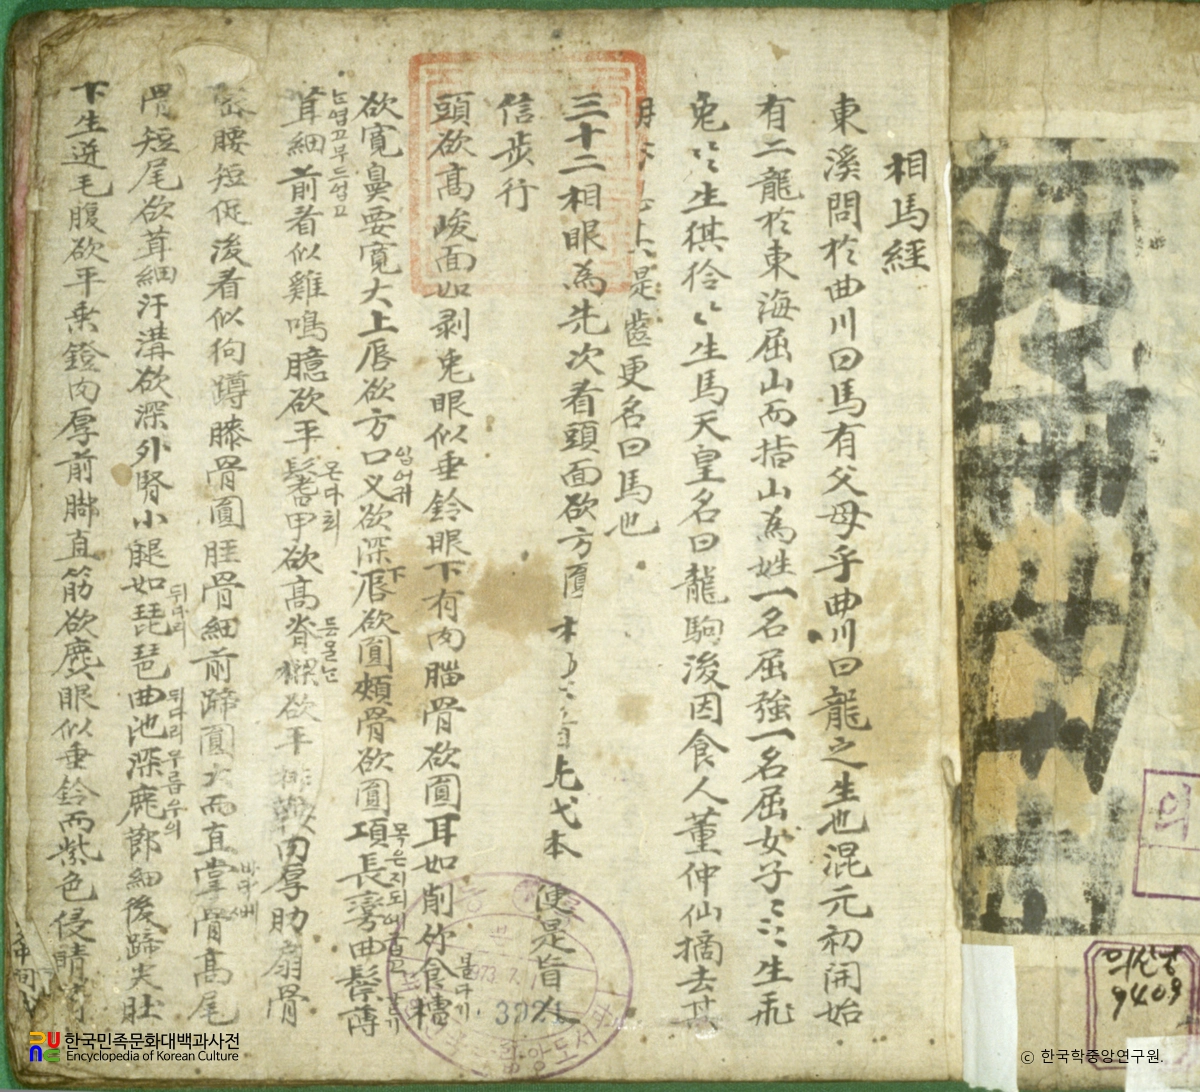 相馬經
東溪問於曲川曰馬有父母乎曲川曰龍之生也混元初開始
有二龍於東海屈山而指山為姓一名屈強一名屈女子〻〻生
兎〻〻生猉狑〻〻生馬天皇名曰龍駒後因食人董仲仙摘去其
是齒更名曰馬也
三十二相眼為先次看頭面欲方圓
信步行
頭欲高峻面如剥兎眼似垂鈴眼下有肉腦骨欲圓耳如削竹食槽
欲寬鼻要寬大上唇欲方口义欲深下唇欲圓頰骨欲圓項長彎曲鬃薄
茸細前看似雞鳴臆欲平鬐甲欲高脊樑欲平排鞍肉厚肋扇骨
密腰短促後看似狗蹲膝骨圓胵骨細前蹄圓大而直掌骨高尾
骨短尾欲茸細汗溝欲深外腎小腿如琵琶曲池深鹿節細後蹄尖肚
下生逆毛腹欲平乘鐙肉厚前脚直筋欲麁眼似垂鈴而紫色侵睛
입어귀
몬다회
등을난
뒤다리
뒤다리우름우의
한국민족문화대백과사전
Encyclopedia of Korean Culture
© 한국학중앙연구원.
의
9409